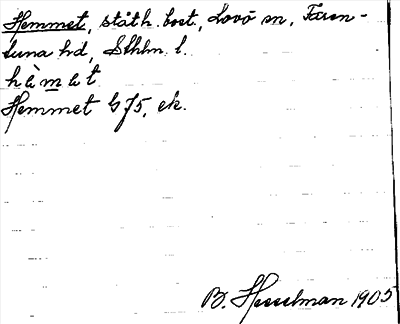 Hemmet, ståth. bost., Lovö sn, Fären-
tuna hd, Sthlm l.
hæ̀mat
Hemmet G J5, ek.
B. Hesselman 1905